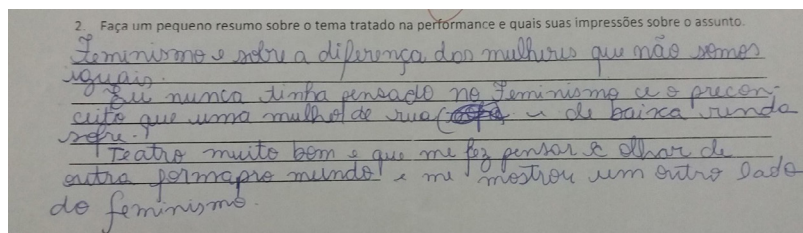 2. Faça um pequeno resumo sobre o tema tratado na performance e quais suas impressões sobre o assunto.
Feminismo e sobre a diferença das mulheres que não somos
iguais.
Eu nunca tinha pensado no Feminismo e o precon-
ceito que uma mulher de rua ( e de baixa renda
sofre.
Teatro muito bom e que me fez pensar e olhar de
outra forma pro mundo e me mostrou um outro lado
do feminismo.